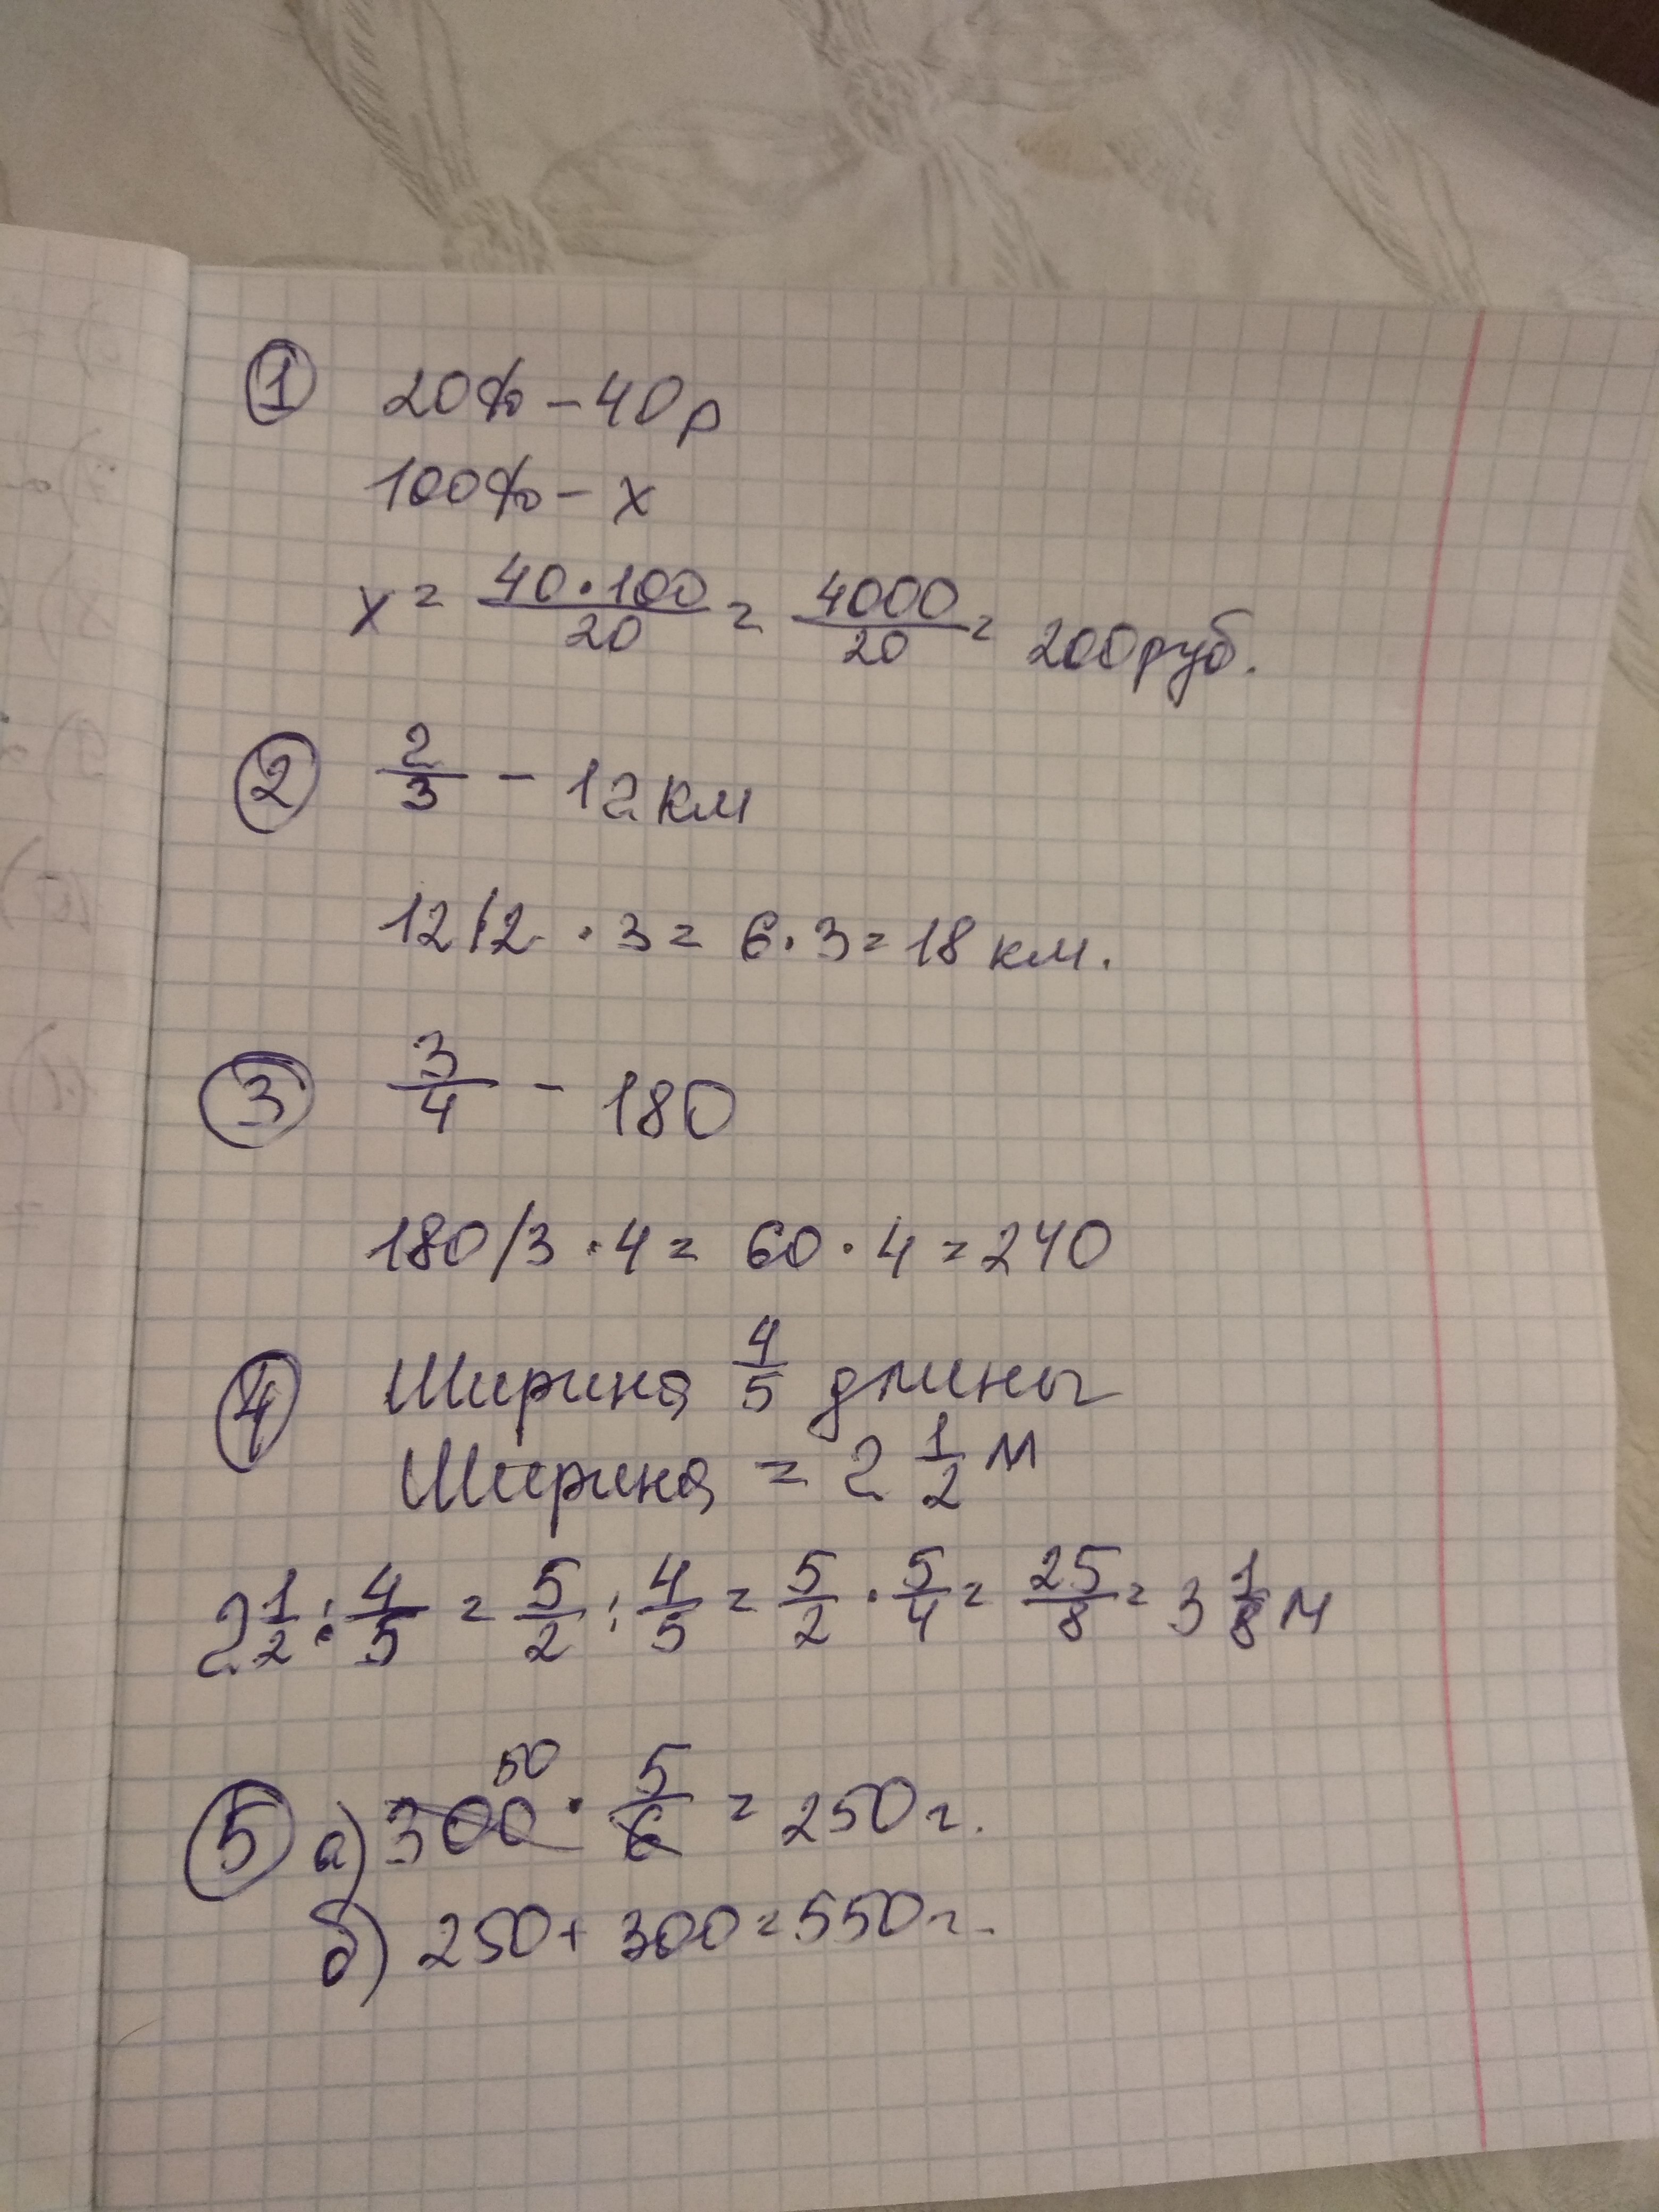 ① 20% – 40р
100% – х
х = 40·100/20 = 4000/20 = 200руб.
② 2/3 – 12км
12/2 · 3 = 6·3 = 18 км.
③ 3/4 – 180
180/3 · 4 = 60 · 4 = 240
④ Ширина 4/5 длины
Ширина = 2 1/2 м
2 1/2 : 4/5 = 5/2 : 4/5 = 5/2 · 5/4 = 25/8 = 3 1/8 м
50
⑤ а) 300 · 5/6 = 250г.
б) 250 + 300 = 550г.